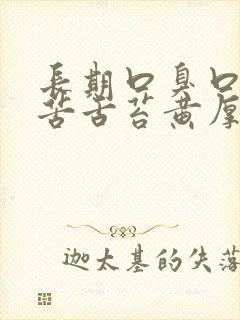 長期口臭口
苦舌苔黄厚
迦太基的失落